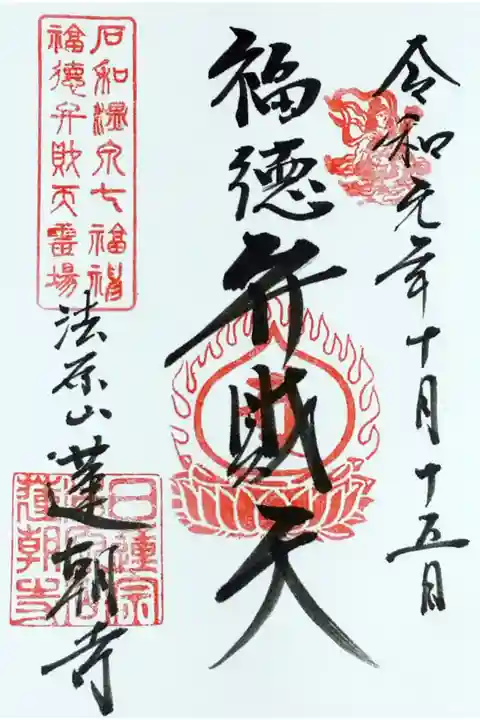 令和元年十月十五日
福徳弁財天
石和温泉七福神
福徳弁財天霊場
法原山 蓮朝寺
日蓮宗
蓮朝寺